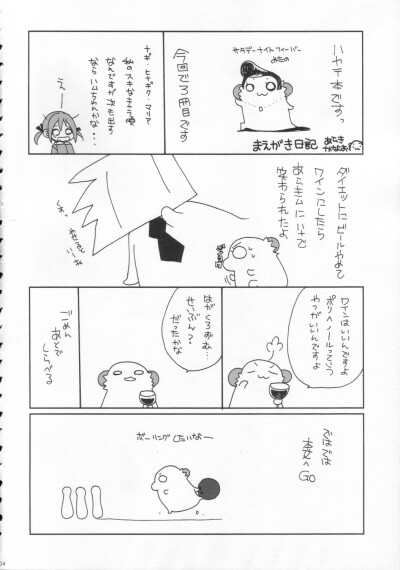 ハヤテ本ですっ
サタデーナイトフィーバー
みたの
まえがき日記
あらき
かなお
今回で3冊目です
ナギ・ヒナギク・マリア
私のスキなキャラ順
なんですが次も出す
なら
えー
ダイエットにビールやめて
ワインにしたら
あらきムにハナで
笑われたよ
くすっ
ワインはいいんですよ
ポリヘノールっていう
やつがいいんですよ
はがくろずむ…
せいぶん?
だったかな
ごめん
あとで
しらべる
ではでは
本文へGO
ボーリングしたいなー